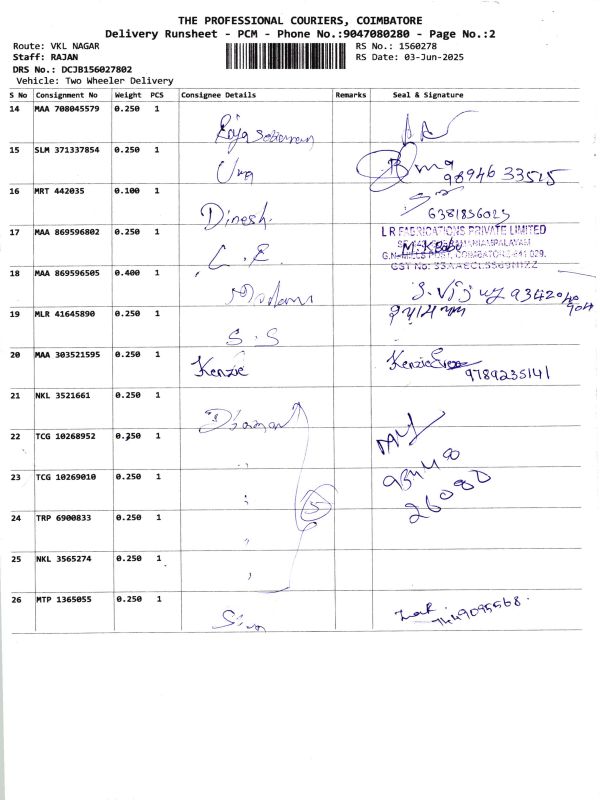 THE PROFESSIONAL COURIERS, COIMBATORE
Delivery Runsheet - PCM - Phone No.:9047080280 - Page No.:2
Route: VKL NAGAR
Staff: RAJAN
DRS No.: DCJB156027802
Vehicle: Two Wheeler Delivery
RS No.: 1560278
RS Date: 03-Jun-2025
S No Consignment No Weight PCS Consignee Details Remarks Seal & Signature
14 MAA 708045579 0.250 1
15 SLM 371337854 0.250 1 Uma
Uma 98946 33515
16 MRT 442035 0.100 1 Dinesh.
6381836023
17 MAA 869596802 0.250 1 L.R.
L R FABRICATIONS PRIVATE LIMITED
M.K Babu
18 MAA 869596505 0.400 1
19 MLR 41645890 0.250 1 S.S
20 MAA 303521595 0.250 1 Kenzie
Kenzie
9789235141
21 NKL 3521661 0.250 1
22 TCG 10268952 0.250 1 "
23 TCG 10269010 0.250 1 "
5
26080
24 TRP 6900833 0.250 1 "
25 NKL 3565274 0.250 1 "
26 MTP 1365055 0.250 1 Siva
7449095568.